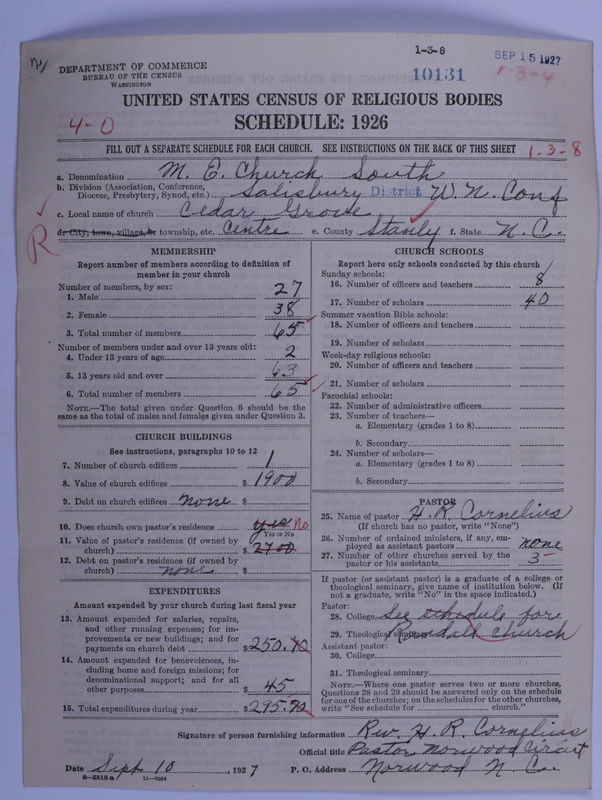 1-3-8
SEP 15 1927
DEPARTMENT OF COMMERCE
BUREAU OF THE CENSUS
WASHINGTON
10131
1-3-4
UNITED STATES CENSUS OF RELIGIOUS BODIES
4-0
SCHEDULE: 1926
FILL OUT A SEPARATE SCHEDULE FOR EACH CHURCH. SEE INSTRUCTIONS ON THE BACK OF THIS SHEET
1-3-8
a. Denomination M. E. Church South
b. Division (Association, Conference, Diocese, Presbytery, Synod, etc.) Salisbury District W. N. Conf
c. Local name of church Cedar Grove
R
d. City, town, village, or township, etc. Centre e. County Stanly f. State N. C.
MEMBERSHIP
Report number of members according to definition of
member in your church
Number of members, by sex:
1. Male 27
2. Female 38
3. Total number of members 65
Number of members under and over 13 years old:
4. Under 13 years of age 2
5. 13 years old and over 63
6. Total number of members 65
NOTE.—The total given under Question 6 should be the
same as the total of males and females given under Question 3.
CHURCH BUILDINGS
See instructions, paragraphs 10 to 12
7. Number of church edifices 1
8. Value of church edifices $ 1900
9. Debt on church edifices none $
10. Does church own pastor's residence yes No
Yes or No
11. Value of pastor's residence (if owned by
church) $ 2700
12. Debt on pastor's residence (if owned by
church) none $
EXPENDITURES
Amount expended by your church during last fiscal year
13. Amount expended for salaries, repairs,
and other running expenses; for im-
provements or new buildings; and for
payments on church debt $ 250.70
14. Amount expended for benevolences, in-
cluding home and foreign missions; for
denominational support; and for all
other purposes $ 45
15. Total expenditures during year $ 295.70
CHURCH SCHOOLS
Report here only schools conducted by this church
Sunday schools:
16. Number of officers and teachers 8
17. Number of scholars 40
Summer vacation Bible schools:
18. Number of officers and teachers
19. Number of scholars
Week-day religious schools:
20. Number of officers and teachers
21. Number of scholars
Parochial schools:
22. Number of administrative officers
23. Number of teachers—
a. Elementary (grades 1 to 8)
b. Secondary
24. Number of scholars—
a. Elementary (grades 1 to 8)
b. Secondary
PASTOR
25. Name of pastor H. R. Cornelius
(If church has no pastor, write "None")
26. Number of ordained ministers, if any, em-
ployed as assistant pastors none
27. Number of other churches served by the
pastor or his assistants 3
If pastor (or assistant pastor) is a graduate of a college or
theological seminary, give name of institution below. (If
not a graduate, write "No" in the space indicated.)
Pastor:
28. College See schedule fore
29. Theological seminary Randall church
Assistant pastor:
30. College
31. Theological seminary
NOTE.—Where one pastor serves two or more churches,
Questions 28 and 29 should be answered only on the schedule
for one of the churches; on the schedules for the other churches,
write "See schedule for church."
Signature of person furnishing information Rev. H. R. Cornelius
Official title Pastor Norwood Circuit
Date Sept. 10, 1927 P. O. Address Norwood N. C.
6-5518a 11-9564